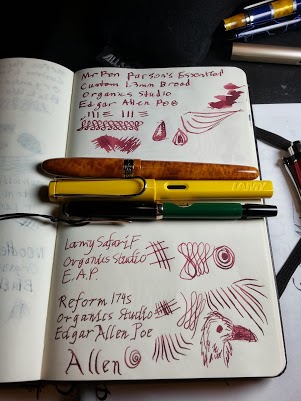 Mr Pen Parson's Essential
Custom 1.3mm Broad
Organics Studio
Edgar Allen Poe
LAMY
Lamy Safari F
Organics Studio
E.A.P.
Reform 1745
Organics Studio
Edgar Allen Poe
Allen